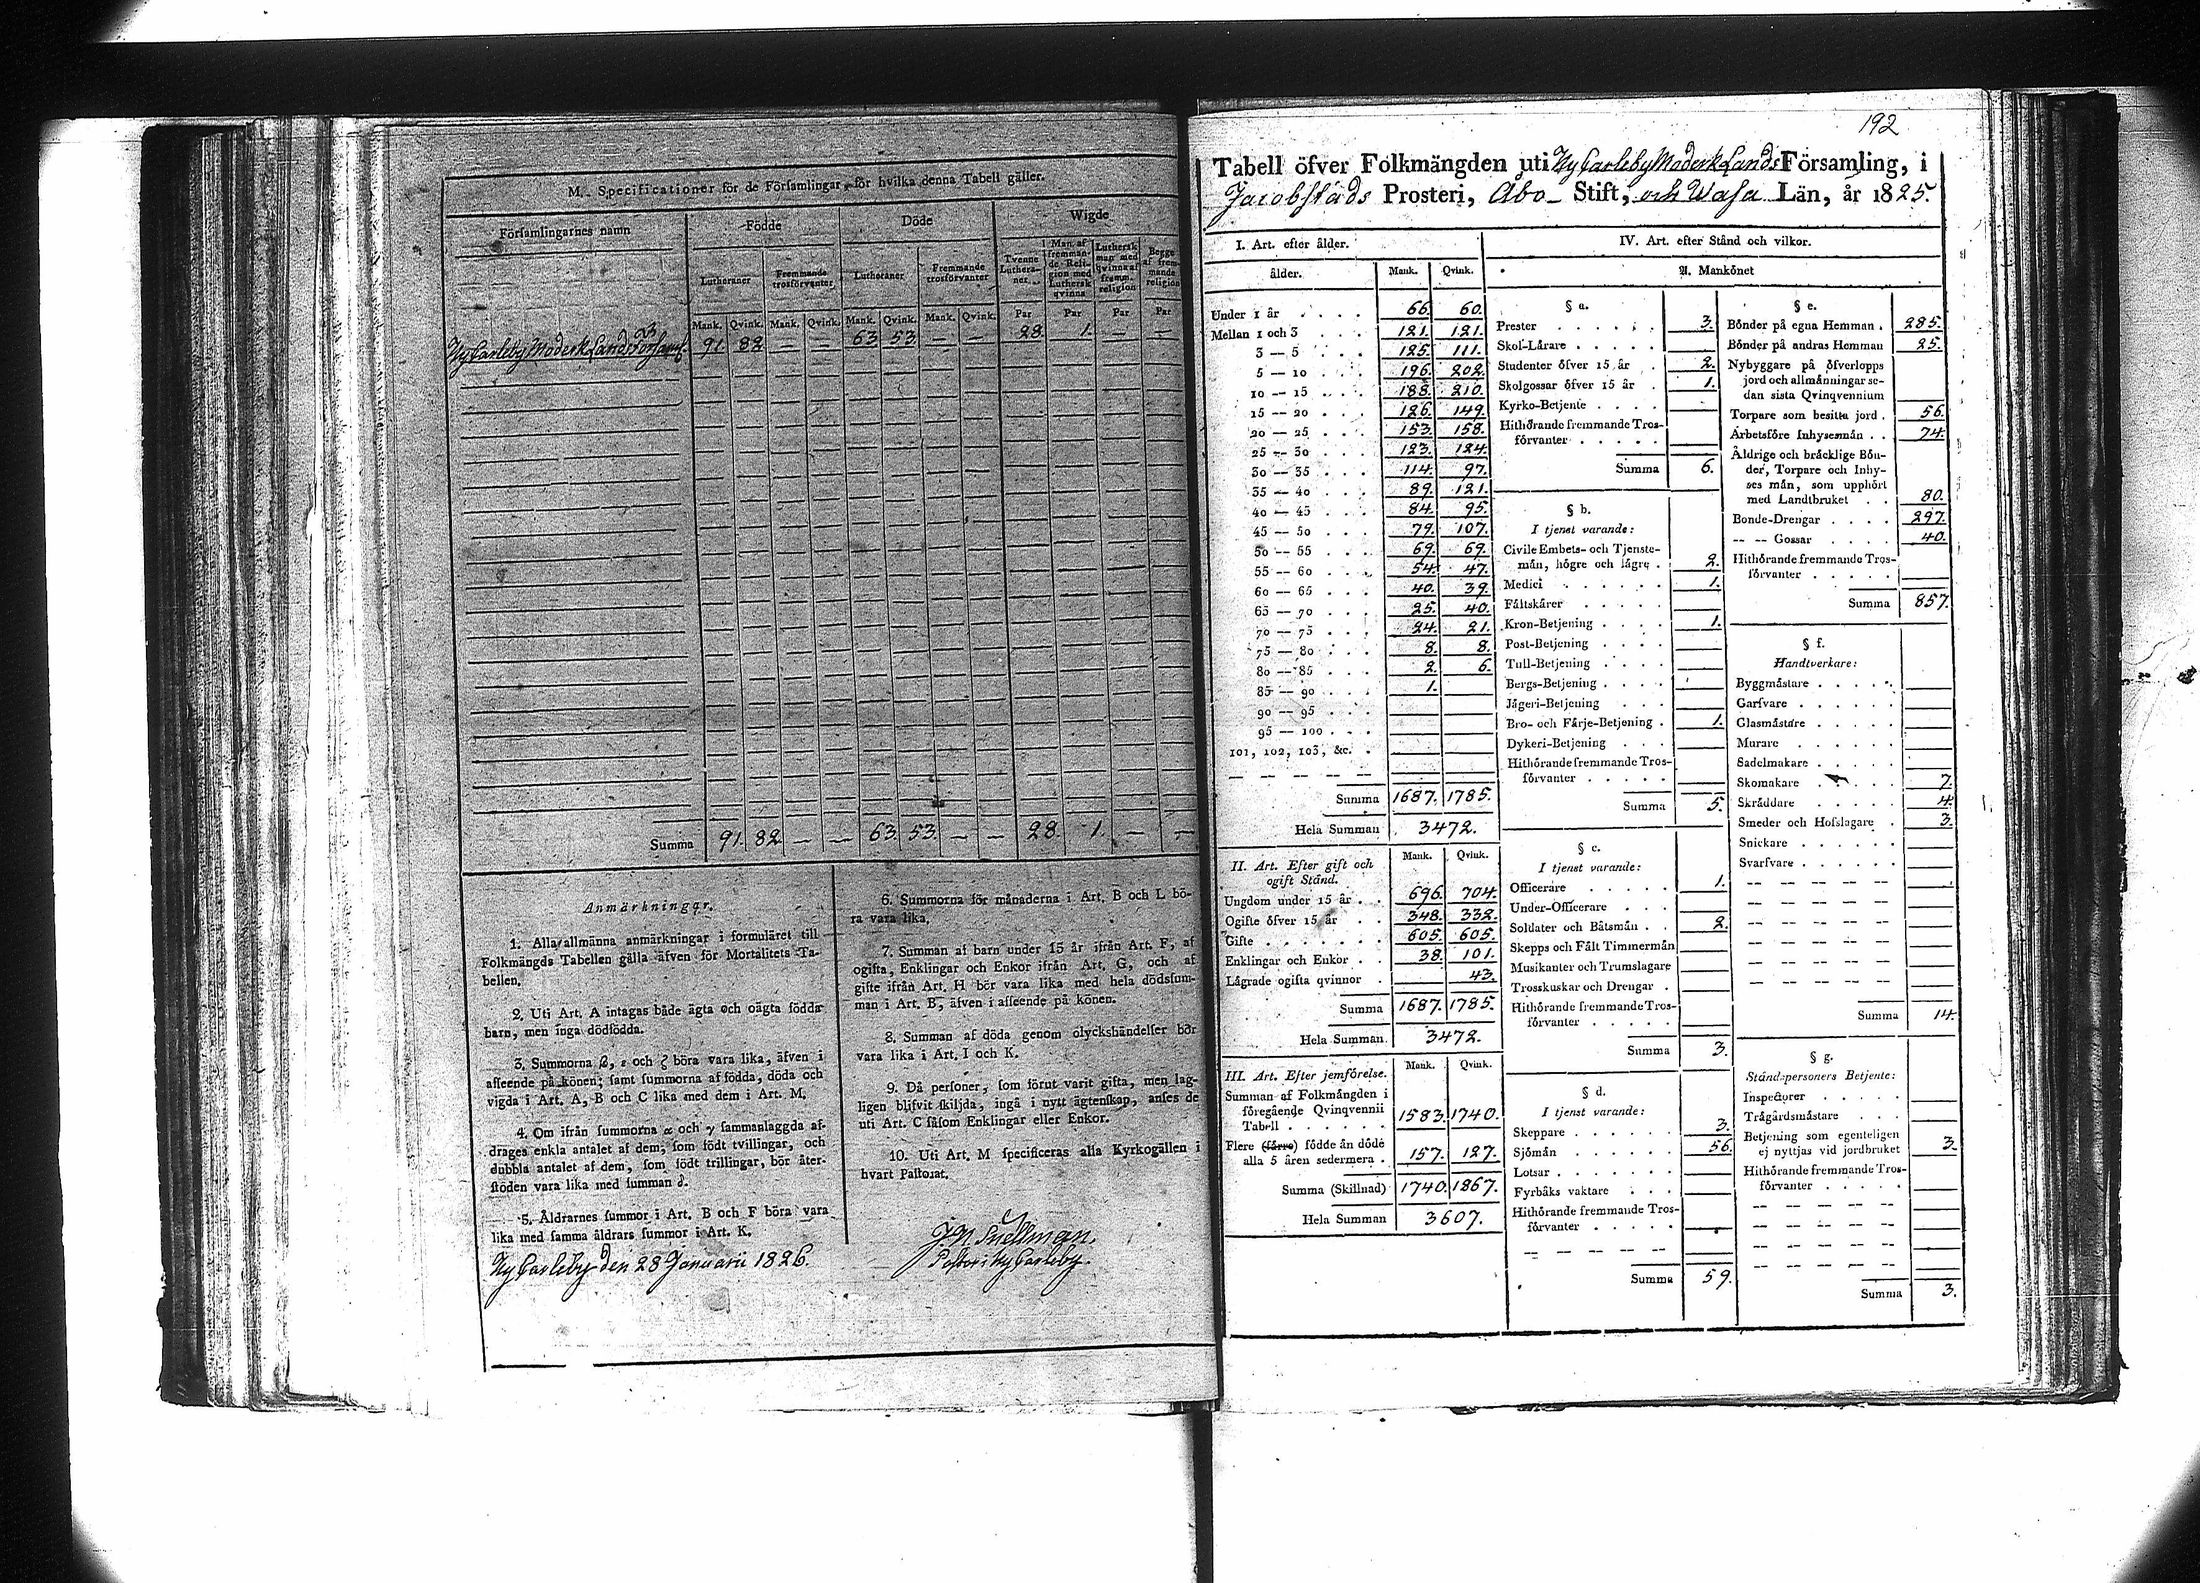 M. Specificationer för de Förſamlingar, för hvilka denna Tabell gäller.
Förſamlingarnes namn
Födde
Döde
Wigde
Lutheraner
Fremmande trosförvanter
Lutheraner
Fremmande trosförvanter
Tvenne Lutheraner.
Man af fremmande Religion med Luthersk qvinna
Luthersk man med qvinna af fremm. religion
Begge af fremmande religion
Mank. Qvink. Mank. Qvink. Mank. Qvink. Mank. Qvink. Par Par Par Par
Ny Carleby Moderk Lands Församl. 91 82 — — 63 53 — — 28. 1. — —
Summa 91. 82 — — 63 53. — — 28 1. — —
Anmärkningar.
1. Alla allmänna anmärkningar i formuläret till
Folkmängds Tabellen gälla äfven för Mortalitets Ta-
bellen.
2. Uti Art. A intagas både ägta och oägta födda
barn, men inga dödfödda.
3. Summorna β, ε och ζ böra vara lika, äfven i
aſſeende på könen; ſamt ſummorna af födda, döda och
vigda i Art. A, B och C lika med dem i Art. M.
4. Om ifrån ſummorna α och γ ſammanlaggda af-
drages enkla antalet af dem, ſom födt tvillingar, och
dubbla antalet af dem, ſom födt trillingar, bör åter-
ſtöden vara lika med ſumman δ.
5. Åldrarnes ſummor i Art. B och F böra vara
lika med ſamma åldrars ſummor i Art. K.
Ny Carleby den 28 Januarii 1826.
6. Summorna för månaderna i Art. B och L bö-
ra vara lika.
7. Summan af barn under 15 år ifrån Art. F, af
ogifta, Enklingar och Enkor ifrån Art. G, och af
gifte ifrån Art. H bör vara lika med hela dödsſum-
man i Art. B, äfven i aſſeende på könen.
8. Summan af döda genom olyckshändelſer bör
vara lika i Art. I och K.
9. Då perſoner, ſom förut varit gifta, men lag-
ligen bliſvit ſkiljda, ingå i nytt ägtenſkap, anſes de
uti Art. C ſåſom Enklingar eller Enkor.
10. Uti Art. M ſpecificeras alla Kyrkogällen i
hvart Paſtorat.
J. N. Snellman.
Pastor i Ny Carleby.
192
Tabell öfver Folkmängden uti Ny Carleby Moderk Lands Församling, i
Jacobstads Prosteri, Åbo – Stift, och Wasa Län, år 1825.
I. Art. efter ålder.
ålder. Mank. Qvink.
Under 1 år 66 60.
Mellan 1 och 3 121. 121.
3 — 5 125. 111.
5 — 10 196. 202.
10 — 15 188. 210.
15 — 20 126. 149.
20 — 25 153. 158.
25 — 30 123. 124.
30 — 35 114. 97.
35 — 40 89. 121.
40 — 45 84. 95.
45 — 50 79. 107.
50 — 55 69. 69.
55 — 60 54. 47.
60 — 65 40. 39.
65 — 70 25. 40.
70 — 75 24. 21.
75 — 80 8. 8.
80 — 85 2. 6.
85 — 90 1.
90 — 95
95 — 100
101, 102, 103, &c.
Summa 1687. 1785.
Hela Summan 3472.
II. Art. Efter gift och
ogift Stånd. Mank. Qvink.
Ungdom under 15 år 696. 704.
Ogifte öfver 15 år 348. 332.
Gifte 605. 605.
Enklingar och Enkor 38. 101.
Lägrade ogifta qvinnor 43.
Summa 1687. 1785.
Hela Summan 3472.
III. Art. Efter jemförelse. Mank. Qvink.
Summan af Folkmängden i
föregående Qvinqvennii
Tabell 1583. 1740.
Flere (färre) födde än döde
alla 5 åren sedermera 157. 127.
Summa (Skillnad) 1740. 1867.
Hela Summan 3607.
IV. Art. efter Stånd och vilkor.
A. Mankönet
§ a.
Prester 3.
Skol-Lärare
Studenter öfver 15 år 2.
Skolgossar öfver 15 år 1.
Kyrko-Betjente
Hithörande fremmande Tros-
förvanter
Summa 6.
§ b.
I tjenst varande:
Civile Embets- och Tjenste-
män, högre och lägre 2.
Medici 1.
Fältskärer
Kron-Betjening 1.
Post-Betjening
Tull-Betjening
Bergs-Betjening
Jägeri-Betjening
Bro- och Färje-Betjening 1.
Dykeri-Betjening
Hithörande fremmande Tros-
förvanter
Summa 5.
§ c.
I tjenst varande:
Officerare 1.
Under-Officerare
Soldater och Båtsmän 2.
Skepps och Fält Timmermän
Musikanter och Trumslagare
Trosskuskar och Drengar
Hithörande fremmande Tros-
förvanter
Summa 3.
§ d.
I tjenst varande:
Skeppare 3.
Sjömän 56.
Lotsar
Fyrbåks vaktare
Hithörande fremmande Tros-
förvanter
Summa 59.
§ e.
Bönder på egna Hemman 285.
Bönder på andras Hemman 25.
Nybyggare på öfverlopps
jord och allmänningar se-
dan sista Qvinqvennium
Torpare som besitta jord 56.
Arbetsföre Inhysesmän 74.
Åldrige och bräcklige Bön-
der, Torpare och Inhy-
ses män, som upphört
med Landtbruket 80.
Bonde-Drengar 297.
— — Gossar 40.
Hithörande fremmande Tros-
förvanter
Summa 857.
§ f.
Handtverkare:
Byggmästare
Garfvare
Glasmästare
Murare
Sadelmakare
Skomakare 7.
Skräddare 4.
Smeder och Hofslagare 3.
Snickare
Svarfvare
Summa 14.
§ g.
Ståndspersoners Betjente:
Inspectorer
Trägårdsmästare
Betjening som egenteligen
ej nyttjas vid jordbruket 3.
Hithörande fremmande Tros-
förvanter
Summa 3.